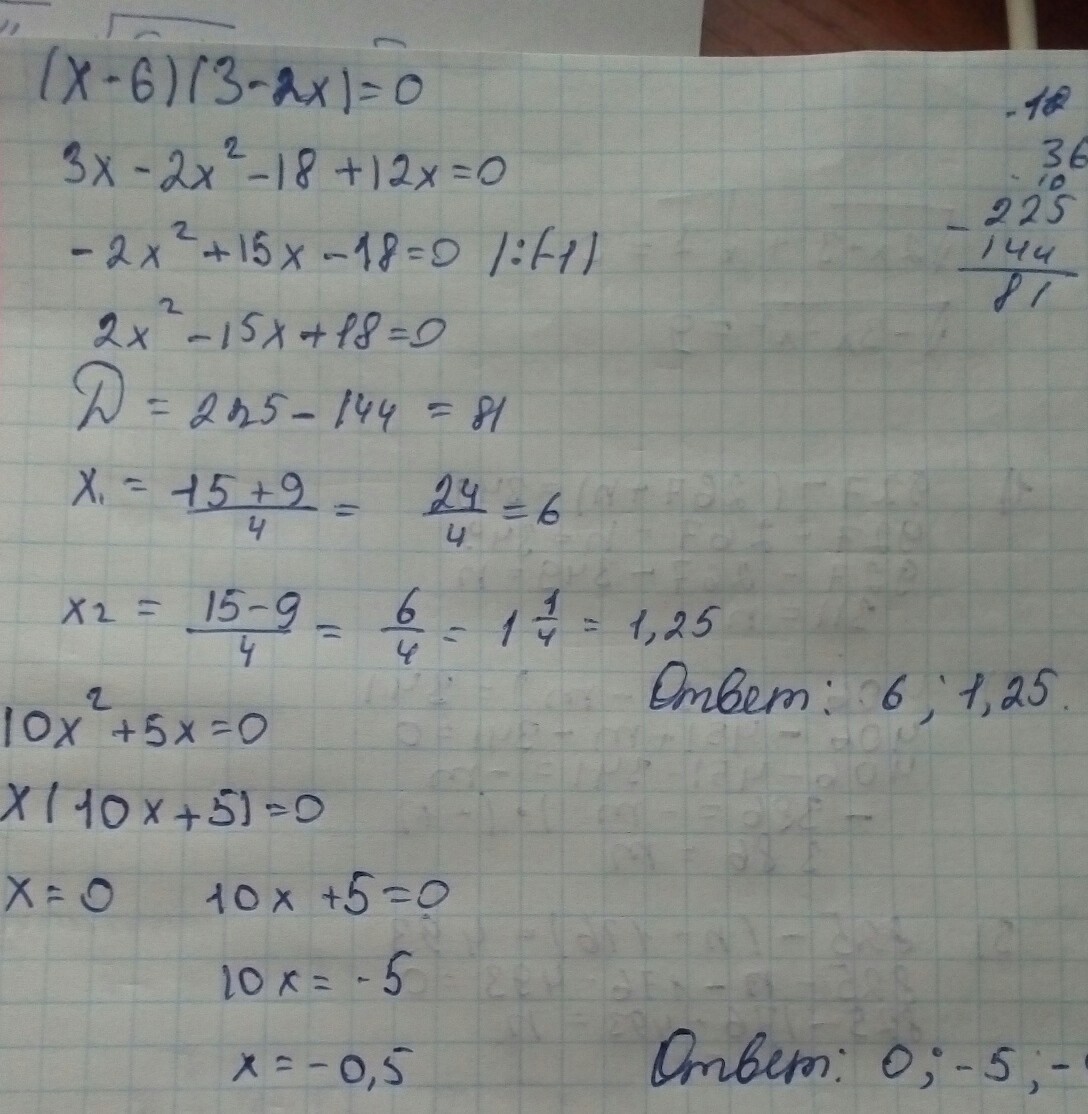 (x-6)(3-2x)=0
3x-2x²-18+12x=0
-2x²+15x-18=0 |:(-1)
2x²-15x+18=0
D = 225-144 = 81
x₁ = 15+9/4 = 24/4 = 6
x₂ = 15-9/4 = 6/4 = 1 1/4 = 1,25
Ответ: 6; 1,25.
10x²+5x=0
x(10x+5)=0
x=0 10x+5=0
10x=-5
x=-0,5
Ответ: 0; -5; -
36
10
-225
144
81